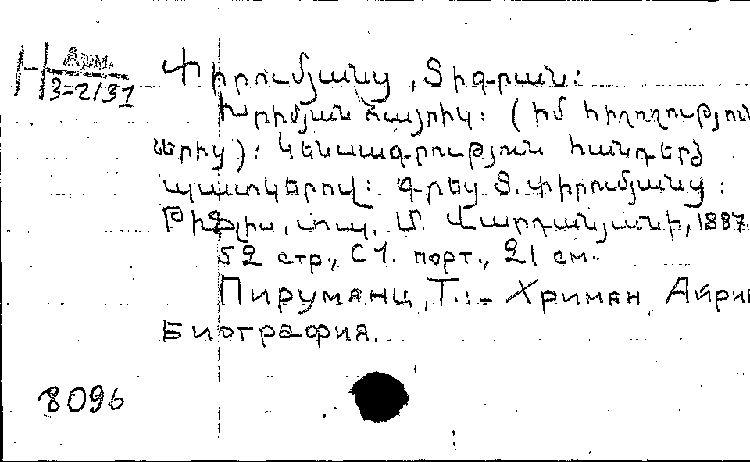 Н Арм.
3-2/37
Փիրումյանց, Տիգրան:
Խրիմյան Հայրիկ: (Իմ հիշողություն
ներից): Կենսագրություն հանդերձ
պատկերով: Գրեց Տ. Փիրումյանց:
Թիֆլիս, տպ. Մ. Վարդանյանի, 1887.
52 стр., С 1. порт., 21 см.
Пирумянц, Т.:- Хримян Айрик
Биография.
8096